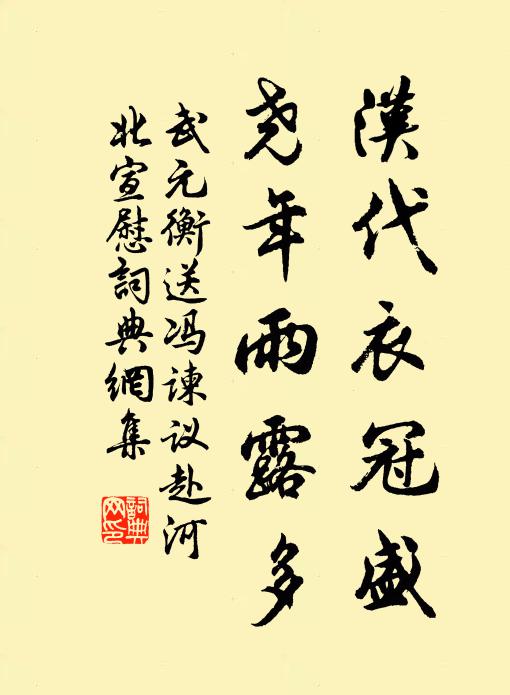 漢代衣冠盛
尧年雨露多
武元衡送冯諫议赴河
北宣慰詞典網集
詞典网印